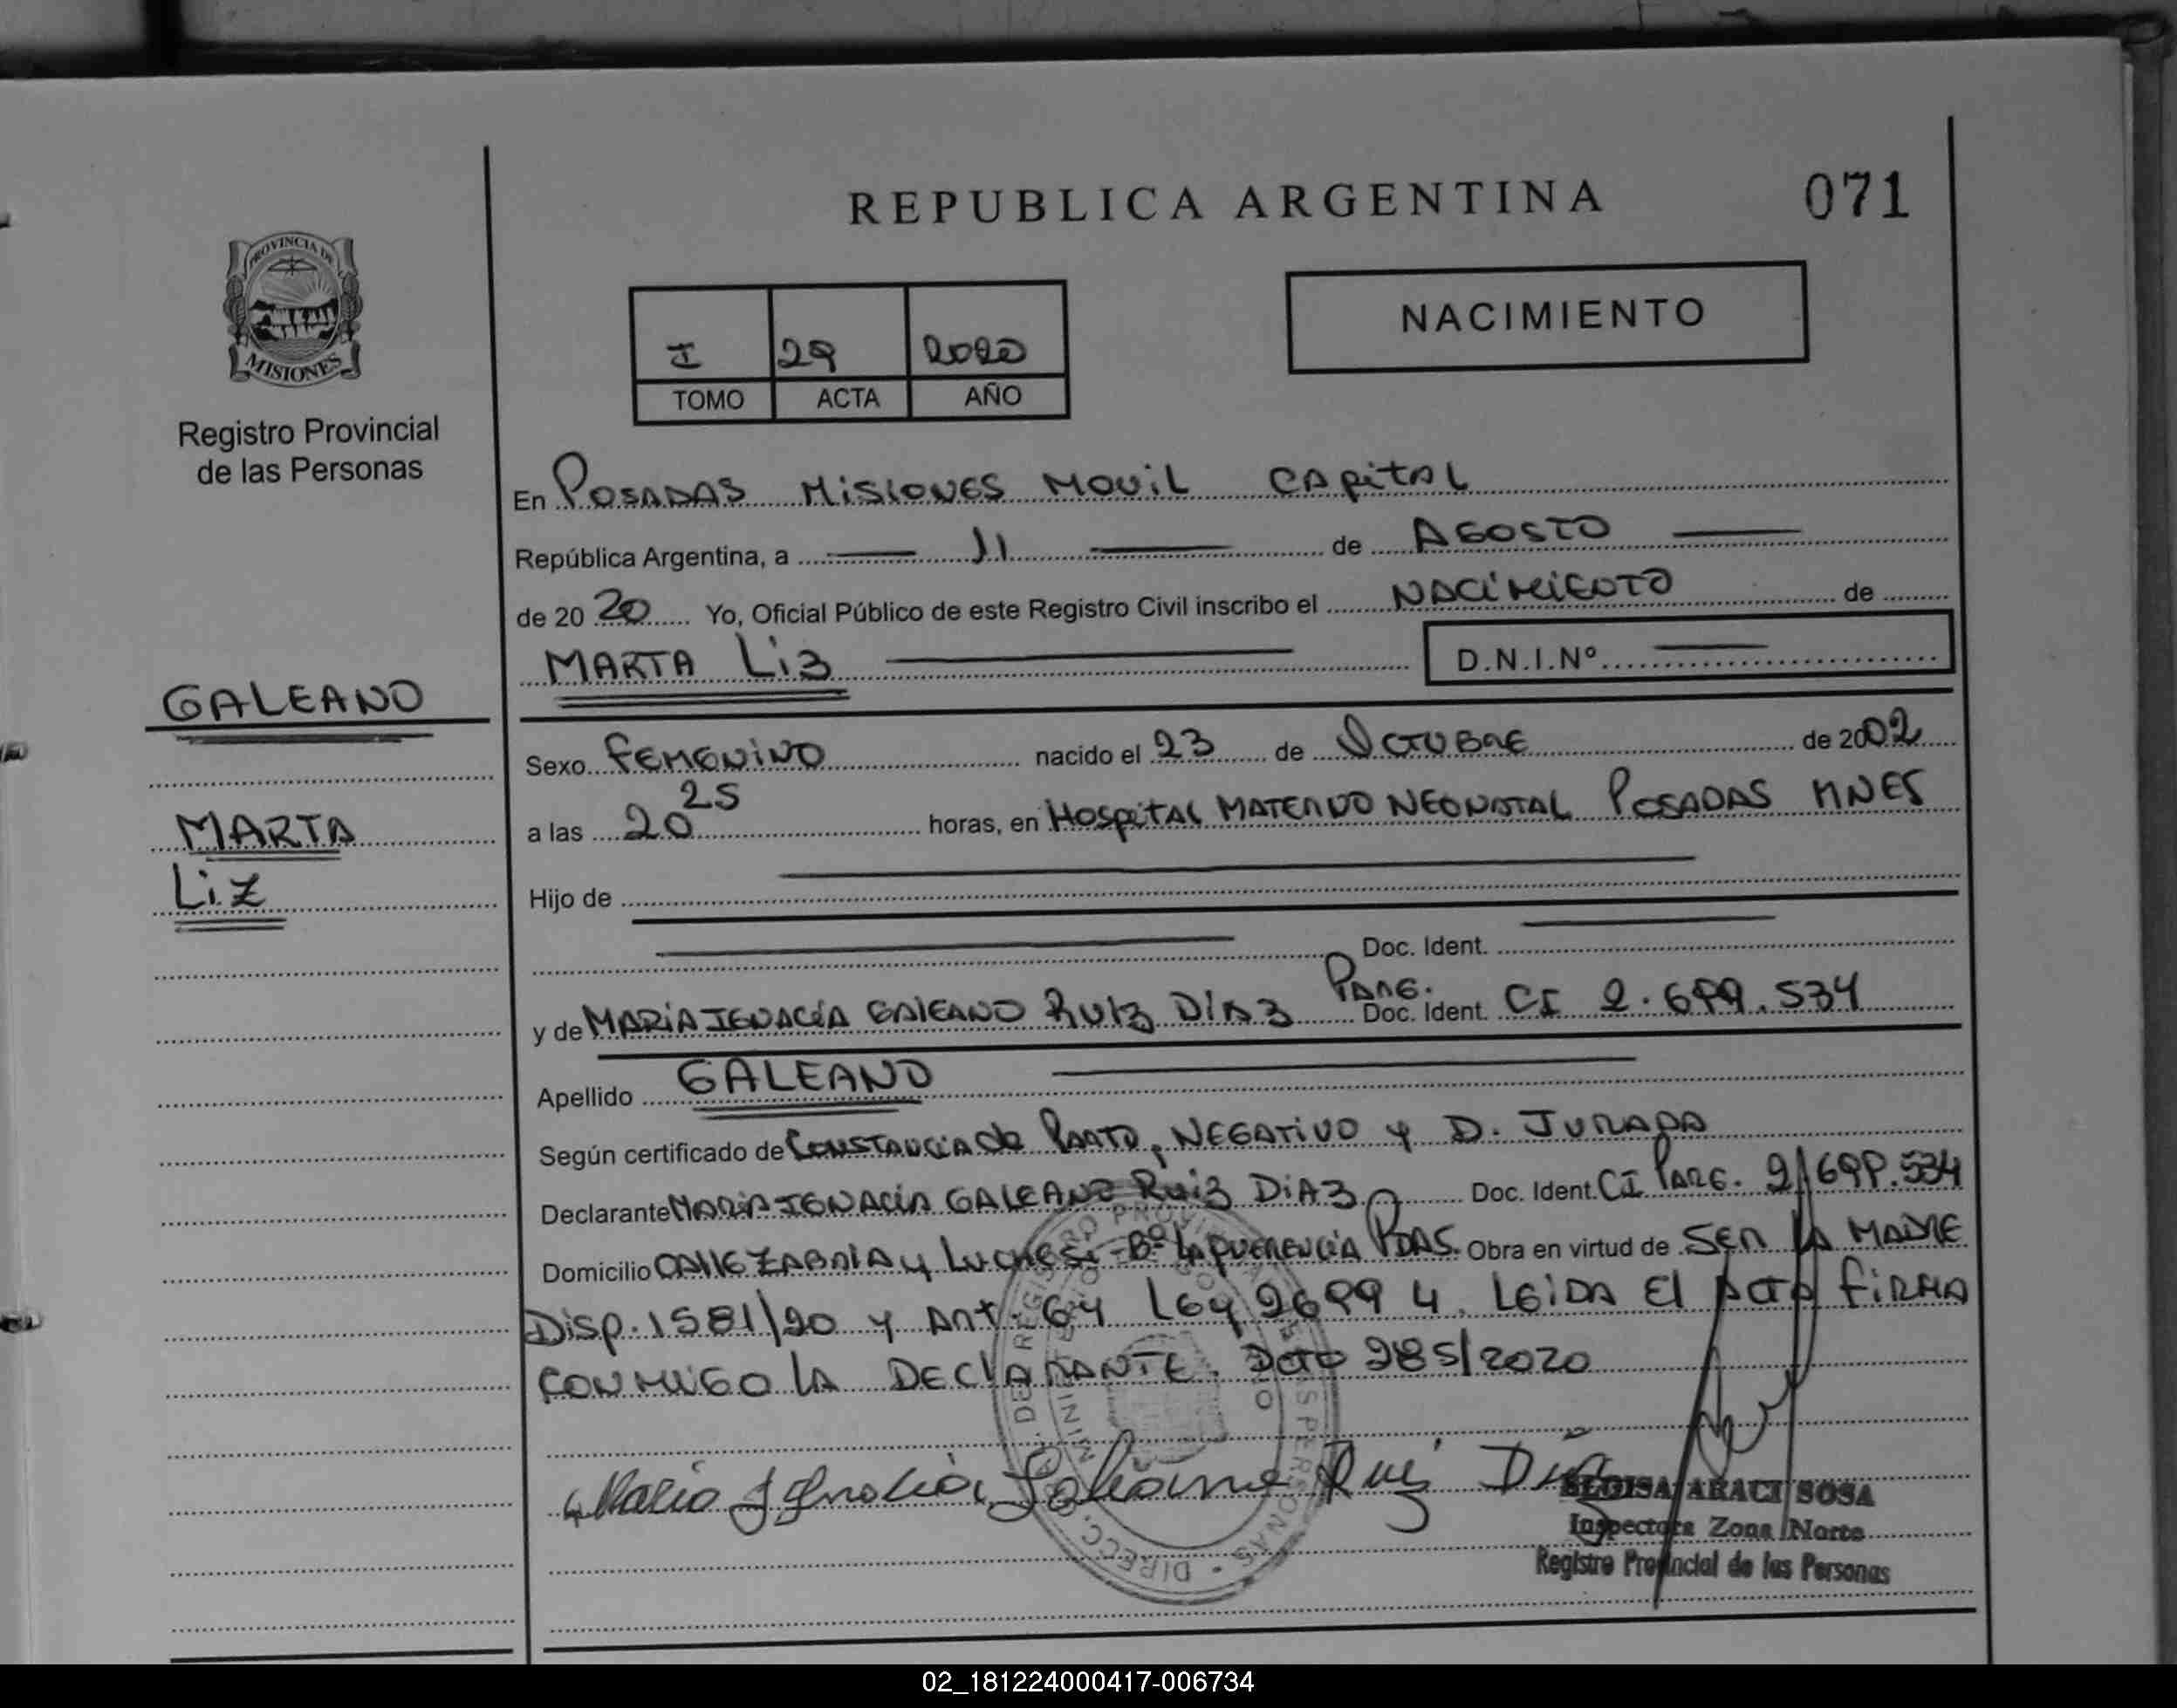 REPUBLICA ARGENTINA
071
PROVINCIA DE
MISIONES
Registro Provincial
de las Personas
I 29 2020
TOMO ACTA AÑO
NACIMIENTO
En POSADAS MISIONES MOVIL CAPITAL
República Argentina, a 11 de AGOSTO
de 20 20 Yo, Oficial Público de este Registro Civil inscribo el NACIMIENTO de
MARTA Liz
D.N.I.Nº
GALEANO
MARTA
Liz
Sexo FEMENINO nacido el 23 de OCTUBRE de 2002
a las 20 25 horas, en HOSPITAL MATERNO NEONATAL POSADAS MNES
Hijo de
Doc. Ident.
y de MARÍA IGNACIA GALEANO RUIZ DÍAZ PARG. Doc. Ident. CI 2.699.534
Apellido GALEANO
Según certificado de CONSTANCIA de PARTO, NEGATIVO y D. JURADA
Declarante MARÍA IGNACIA GALEANO RUIZ DIAZ Doc. Ident. CI PARG. 2.699.534
Domicilio CALLE ZABALA y LUCHESI - Bº LA QUERENCIA PDAS. Obra en virtud de SER LA MADRE
DISP. 1581/20 y ART. 64 LEY 26994. LEIDA El ACTA FIRMA
CONMIGO LA DECLARANTE. Dcto 285/2020
Maria Ignacia Galeano Ruiz Diaz
ELOISA ARACI SOSA
Inspectora Zona Norte
Registro Provincial de las Personas
02_181224000417-006734